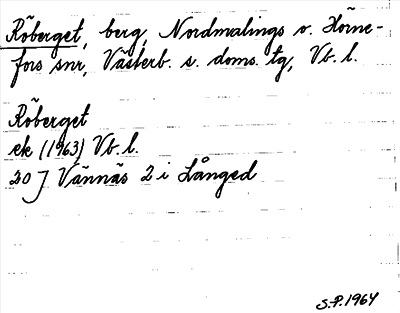 Röberget, berg, Nordmalings o. Hörne-
fors snr, Västerb. s. doms. tg, Vb. l.
Röberget
ek (1963) Vb. l.
20 J Vännäs 2 i Långed
S.P. 1964